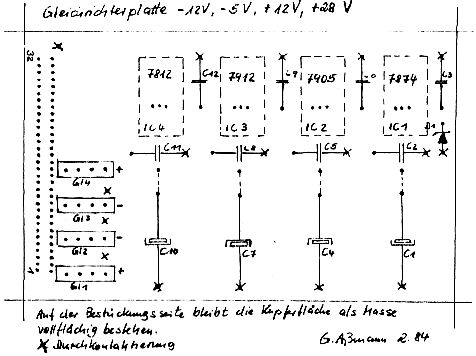 Gleichrichterplatte -12V, -5V, +12V, +28 V
32
7812 C12 7912 C9 7905 7874 C3
IC4 IC3 IC2 IC1 D1
C11 C8 C5 C2
Gl4 +
Gl3 -
Gl2 -
Gl1 +
1
C10 C7 C4 C1
Auf der Bestückungsseite bleibt die Kupferfläche als Masse
vollflächig bestehen.
Durchkontaktierung
G. Aßmann 2.84